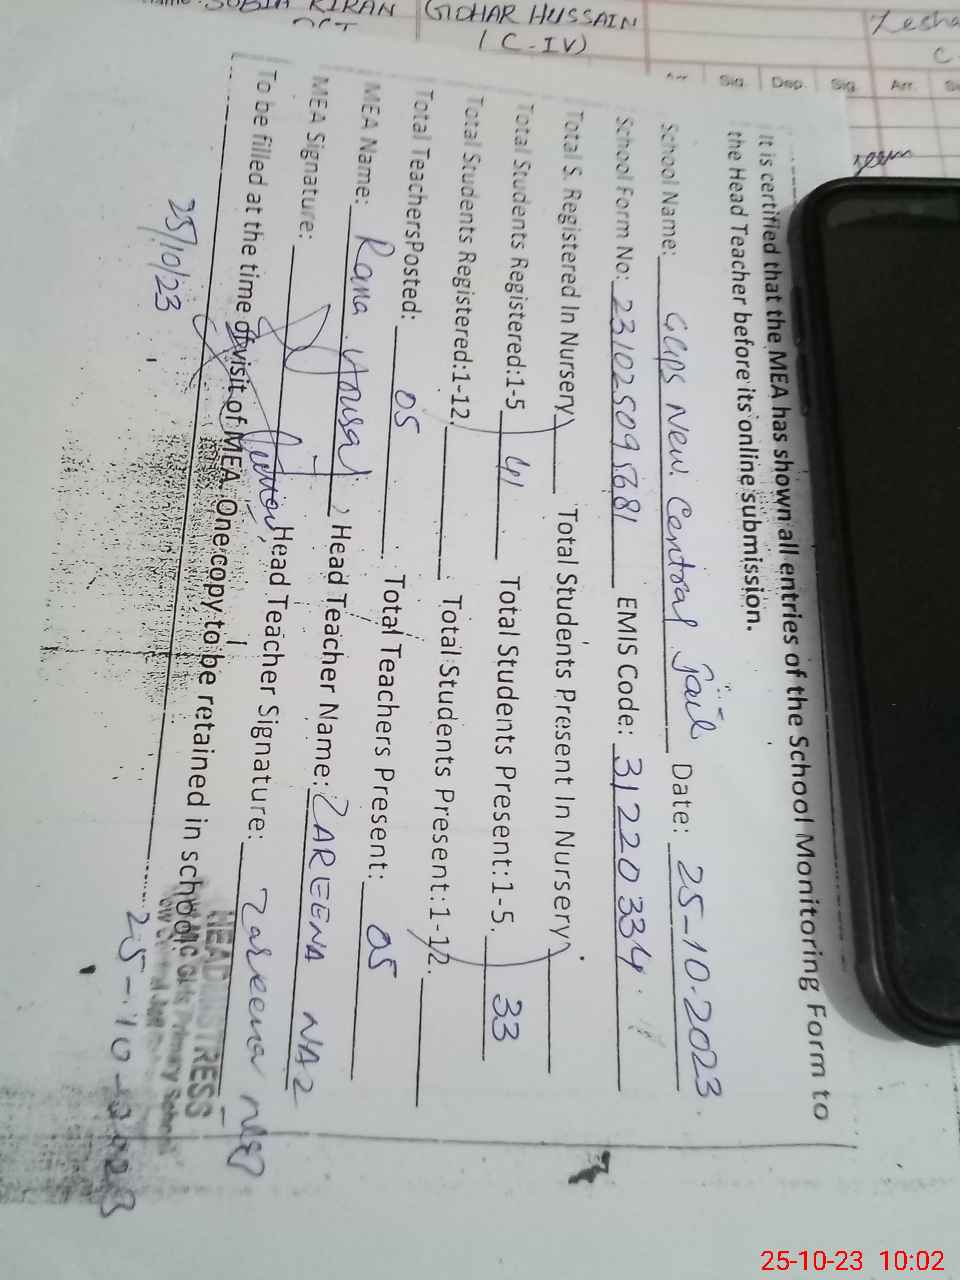 KIRAN
GOHAR HUSSAIN
(C-IV)
Sig. Dep. Sig. Arr.
It is certified that the MEA has shown all entries of the School Monitoring Form to
the Head Teacher before its online submission.
School Name: GGPS New Central Jail Date: 25-10-2023
School Form No: 231025095681 EMIS Code: 31220334
Total S. Registered In Nursery Total Students Present In Nursery
Total Students Registered:1-5 41 Total Students Present:1-5. 33
Total Students Registered:1-12. Total Students Present:1-12.
Total TeachersPosted: 05 Total Teachers Present: 05
MEA Name: Rana Yousaf Head Teacher Name: ZAREENA NAZ
MEA Signature: Head Teacher Signature: Zareena naz
To be filled at the time of visit of MEA. One copy to be retained in school
25/10/23
HEADMISTRESS
Primary School
25-10-2023
25-10-23 10:02